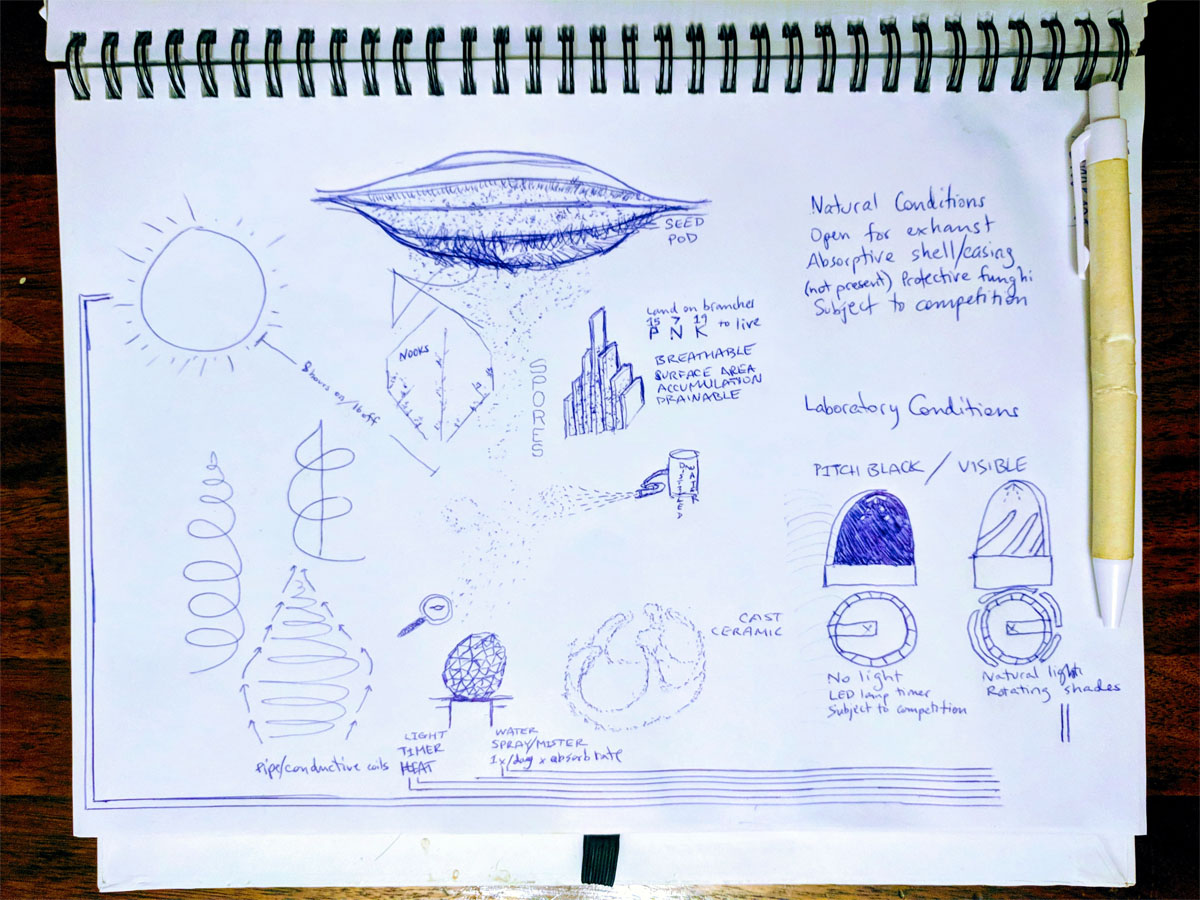 SEED
POD
Natural Conditions
Open for exhaust
Absorptive shell/casing
(not present) Protective funghi
Subject to competition
Land on branches
15 7 19
P N K to live
BREATHABLE
SURFACE AREA
ACCUMULATION
DRAINABLE
NOOKS
SPORES
8 hours on/16 off
Laboratory Conditions
PITCH BLACK / VISIBLE
DISTILLED
WATER
CAST
CERAMIC
No light
LED lamp timer
Subject to competition
Natural light
Rotating shades
LIGHT
TIMER
HEAT
WATER
SPRAY/MISTER
1x/day x absorb rate
Pipe/conductive coils